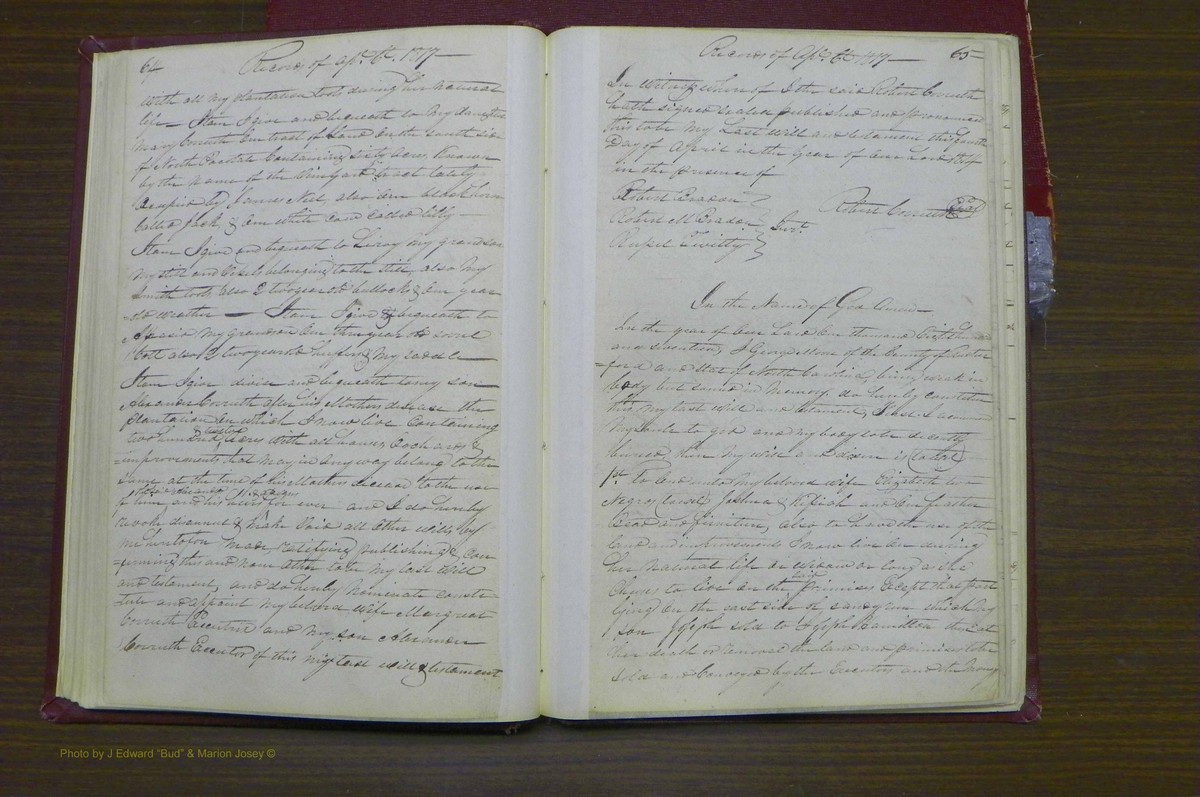 64 Record of Apl. Ct. 1817
with all my plantation tools during her natural
life — Item I give and bequeath to my daughter
Mary Corruth One tract of land on the south side
of North Pacolate Containing sixty acres, Known
by the name of the tract lately
Occupied by James Neel, also One
called Jack & One white Cow called Lilly
Item I give and bequeath to Leroy my grandson
my still and belonging to the still, also My
smith tools also 2 two year old bullocks & One year
old weather — Item I give & bequeath to
my grandson One three year old sorrel
Colt also 2 two year old & My saddle
Item I give divise and bequeath to my son
Alexander Corruth after his Mothers disease the
plantation On which I now live Containing
two hundred acres with all houses Orchards &
improvements that may in any way belong to the
same at the time of his Mothers disease to the use
of him and his heirs for ever and I do hereby
revoke disannul & make Void all Other wills by
me heretofore made ratifying publishing & Con
=firming this and none Other to be my last Will
and testament, and do hereby Nominate consti=
tute and appoint my beloved Wife Margreat
Corruth Executrix and My son Alexander
Corruth Executor of this my last will & testament
Record of Apl. Ct. 1817 65
In Witness where of I the said Robert Corruth
hath signed sealed published and pronounced
this to be My Last Will and testament this fourth
Day of April in the year of Our Lord
in the presence of
Robert Bradon
Robert Corruth Seal
Robert M Bradon Jurt.
Twitty
In the Name of God Amen
In the year of Our Lord One thousand Eight hundred
and seventeen, I George of the County of Ruther
=ford and State of North Carolina, being weak in
body but sound in Memory do hereby constitute
this my last will and testament, I
My soule to god and my body to be decently
burried, then my wish and desire is (to wit)
1st. To lend unto my beloved wife Elizabeth two
Negros (to wit) Joshua & and One feather
bead and furniture, also to have the use of the
land and improvements I now live on during
her natural life or widow or long as she
Chuses to live on the said primises Except that part
lying on the east side of sandy run which my
son Joseph sold to Joseph Hamilton then at
her death or removeal the land and primises to be
sold and Conveyed by the Executors and the Money
Photo by J Edward "Bud" & Marion Josey ©